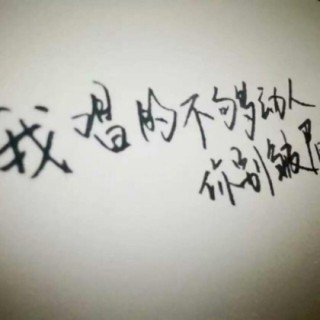 我唱的不够动人
你别皱